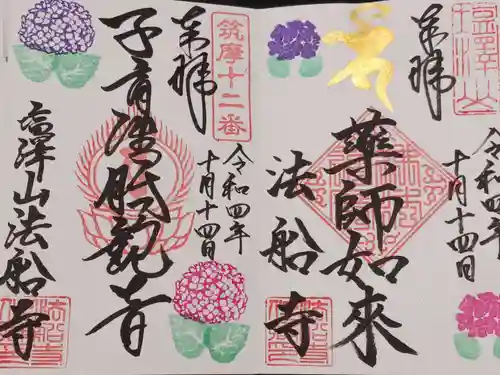 奉拝
令和四年
十月十四日
薬師如来
法船寺
奉拝
筑摩十二番
令和四年
十月十四日
子育濡肌観音
塩澤山法船寺